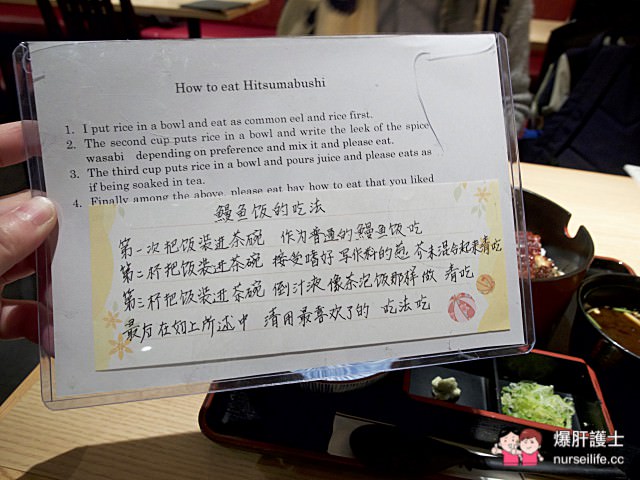 How to eat Hitsumabushi
1. I put rice in a bowl and eat as common eel and rice first.
2. The second cup puts rice in a bowl and write the leek of the spice
wasabi depending on preference and mix it and please eat.
3. The third cup puts rice in a bowl and pours juice and please eats as
if being soaked in tea.
4. Finally among the above, please eat bay how to eat that you liked
鳗鱼饭的吃法
第一次把饭装进茶碗 作为普通的鳗鱼饭吃
第二杯把饭装进茶碗 接受嗜好 写作料的葱 芥末混合起来请吃
第三杯把饭装进茶碗 倒汁液 像茶泡饭那样做 请吃
最后在如上所述中 请用最喜欢了的 吃法吃
爆肝護士
nurseilife.cc